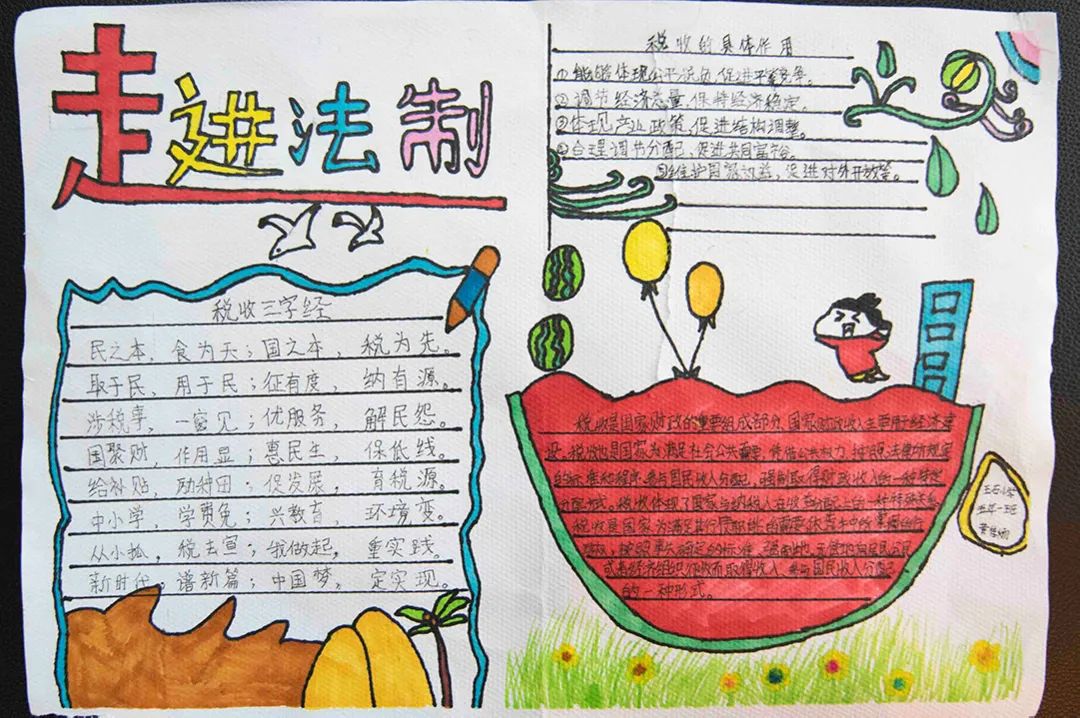 走进法制
税收三字经
民之本，食为天；国之本，税为先。
取于民，用于民；征有度，纳有源。
涉税事，一窗见；优服务，解民怨。
国聚财，作用显；惠民生，保低线。
给补贴，励种田；促发展，育税源。
中小学，学费免；兴教育，环境变。
从小抓，税去宣；我做起，重实践。
新时代，谱新篇；中国梦，定实现。
税收的具体作用
①能够体现公平税负，促进平等竞争。
②调节经济总量，保持经济稳定。
③体现产业政策，促进结构调整。
④合理调节分配，促进共同富裕。
维护国家权益，促进对外开放等。
税收是国家财政的重要组成部分，国家财政收入主要用于经济建
设，税收也是国家为满足社会公共需要，凭借公共权力，按照法律所规定
的标准和程序，参与国民收入分配，强制取得财政收入的一种特定
分配方式。税收体现了国家与纳税人在
税收是国家为满足其行使职能的需要
按照事先确定的标准，强制地、无偿地向居民公民
或者经济组织征收而取得收入，参与国民收入分配
的一种形式。
五年一班